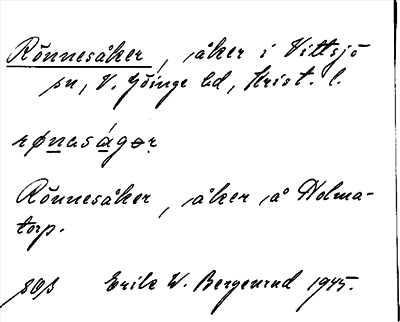 Rönnesåker, åker i Vittsjö
sn, V. Göinge hd, Krist. l.
rønəságər
Rönnesåker, åker å Holma-
torp.
Erik W. Bergenrud 1945.